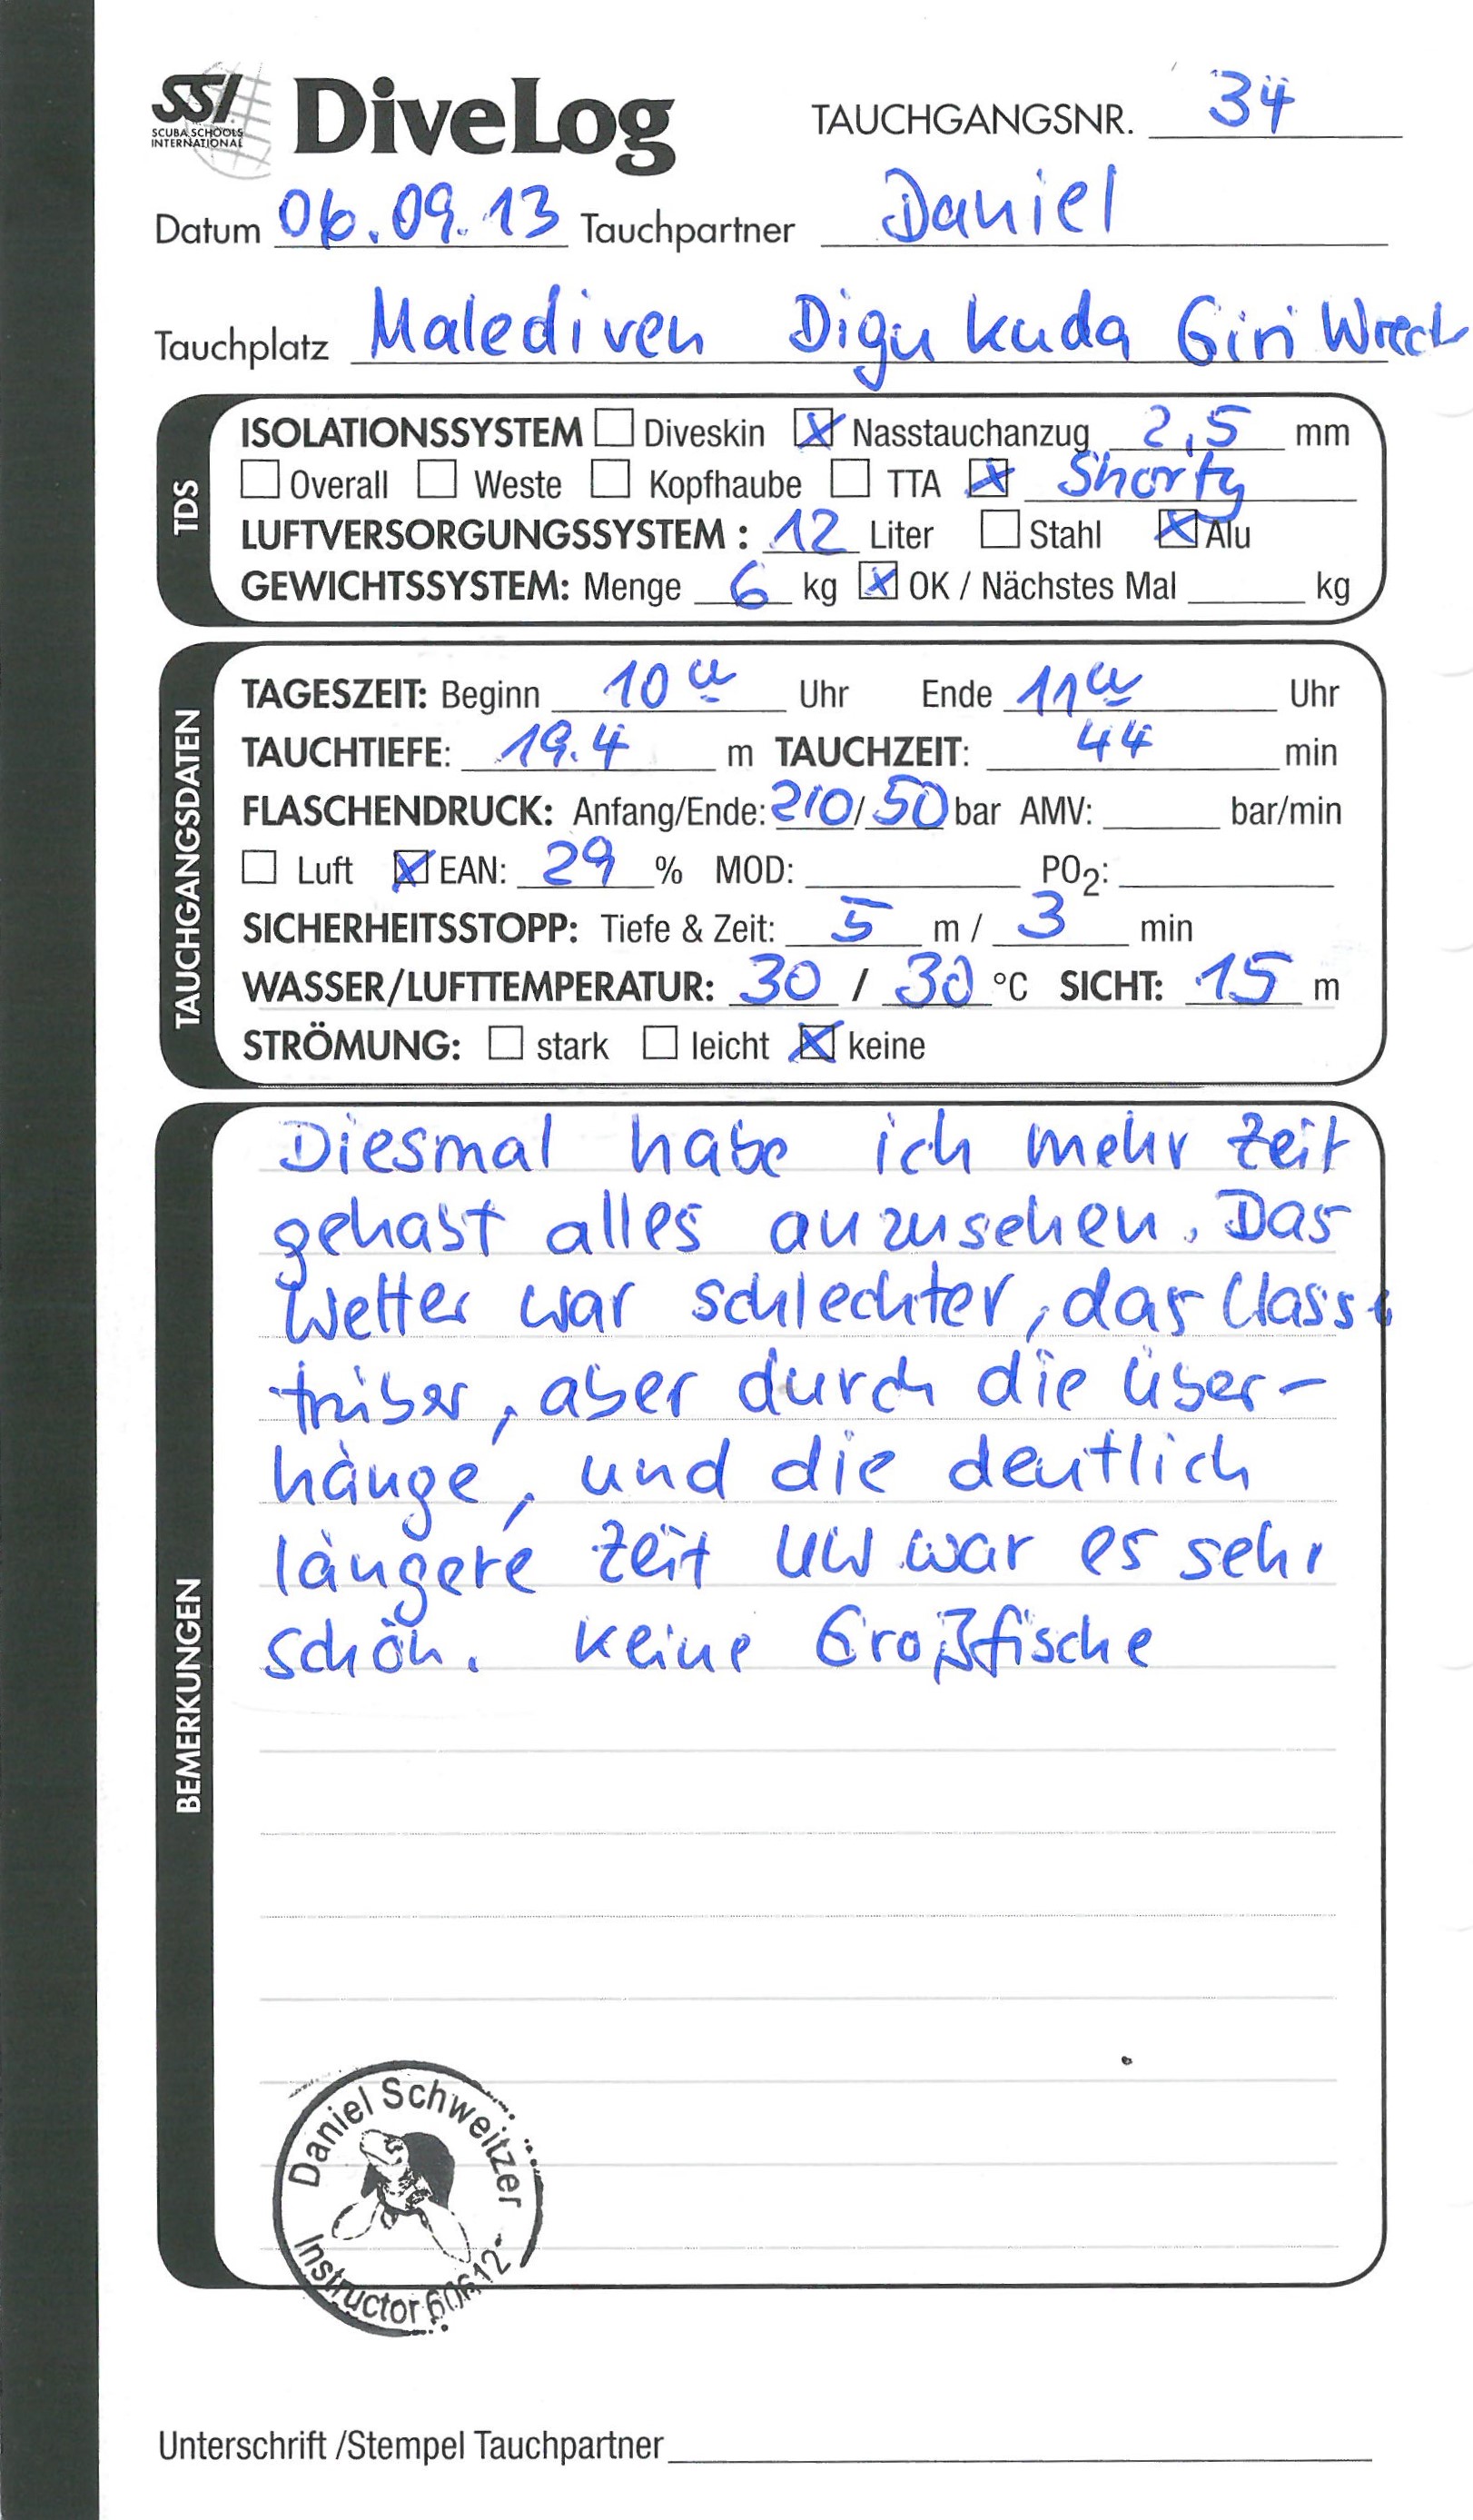 SSI DiveLog TAUCHGANGSNR. 34
SCUBA SCHOOLS
INTERNATIONAL
Datum 06.09.13 Tauchpartner Daniel
Tauchplatz Malediven Digu Kuda Giri Wreck
TDS
ISOLATIONSSYSTEM Diveskin Nasstauchanzug 2,5 mm
Overall Weste Kopfhaube TTA Shorty
LUFTVERSORGUNGSSYSTEM : 12 Liter Stahl Alu
GEWICHTSSYSTEM: Menge 6 kg OK / Nächstes Mal kg
TAUCHGANGSDATEN
TAGESZEIT: Beginn 10 Uhr Ende 11 Uhr
TAUCHTIEFE: 19.4 m TAUCHZEIT: 44 min
FLASCHENDRUCK: Anfang/Ende: 210/50 bar AMV: bar/min
Luft EAN: 29 % MOD: PO2:
SICHERHEITSSTOPP: Tiefe & Zeit: 5 m / 3 min
WASSER/LUFTTEMPERATUR: 30 / 30 °C SICHT: 15 m
STRÖMUNG: stark leicht keine
BEMERKUNGEN
Diesmal habe ich mehr Zeit
gehabt alles anzusehen. Das
Wetter war schlechter, das
trüber, aber durch die Über-
hänge, und die deutlich
längere Zeit UW war es sehr
schön. Keine Großfische
Daniel Schweitzer
Instructor 60612
Unterschrift /Stempel Tauchpartner